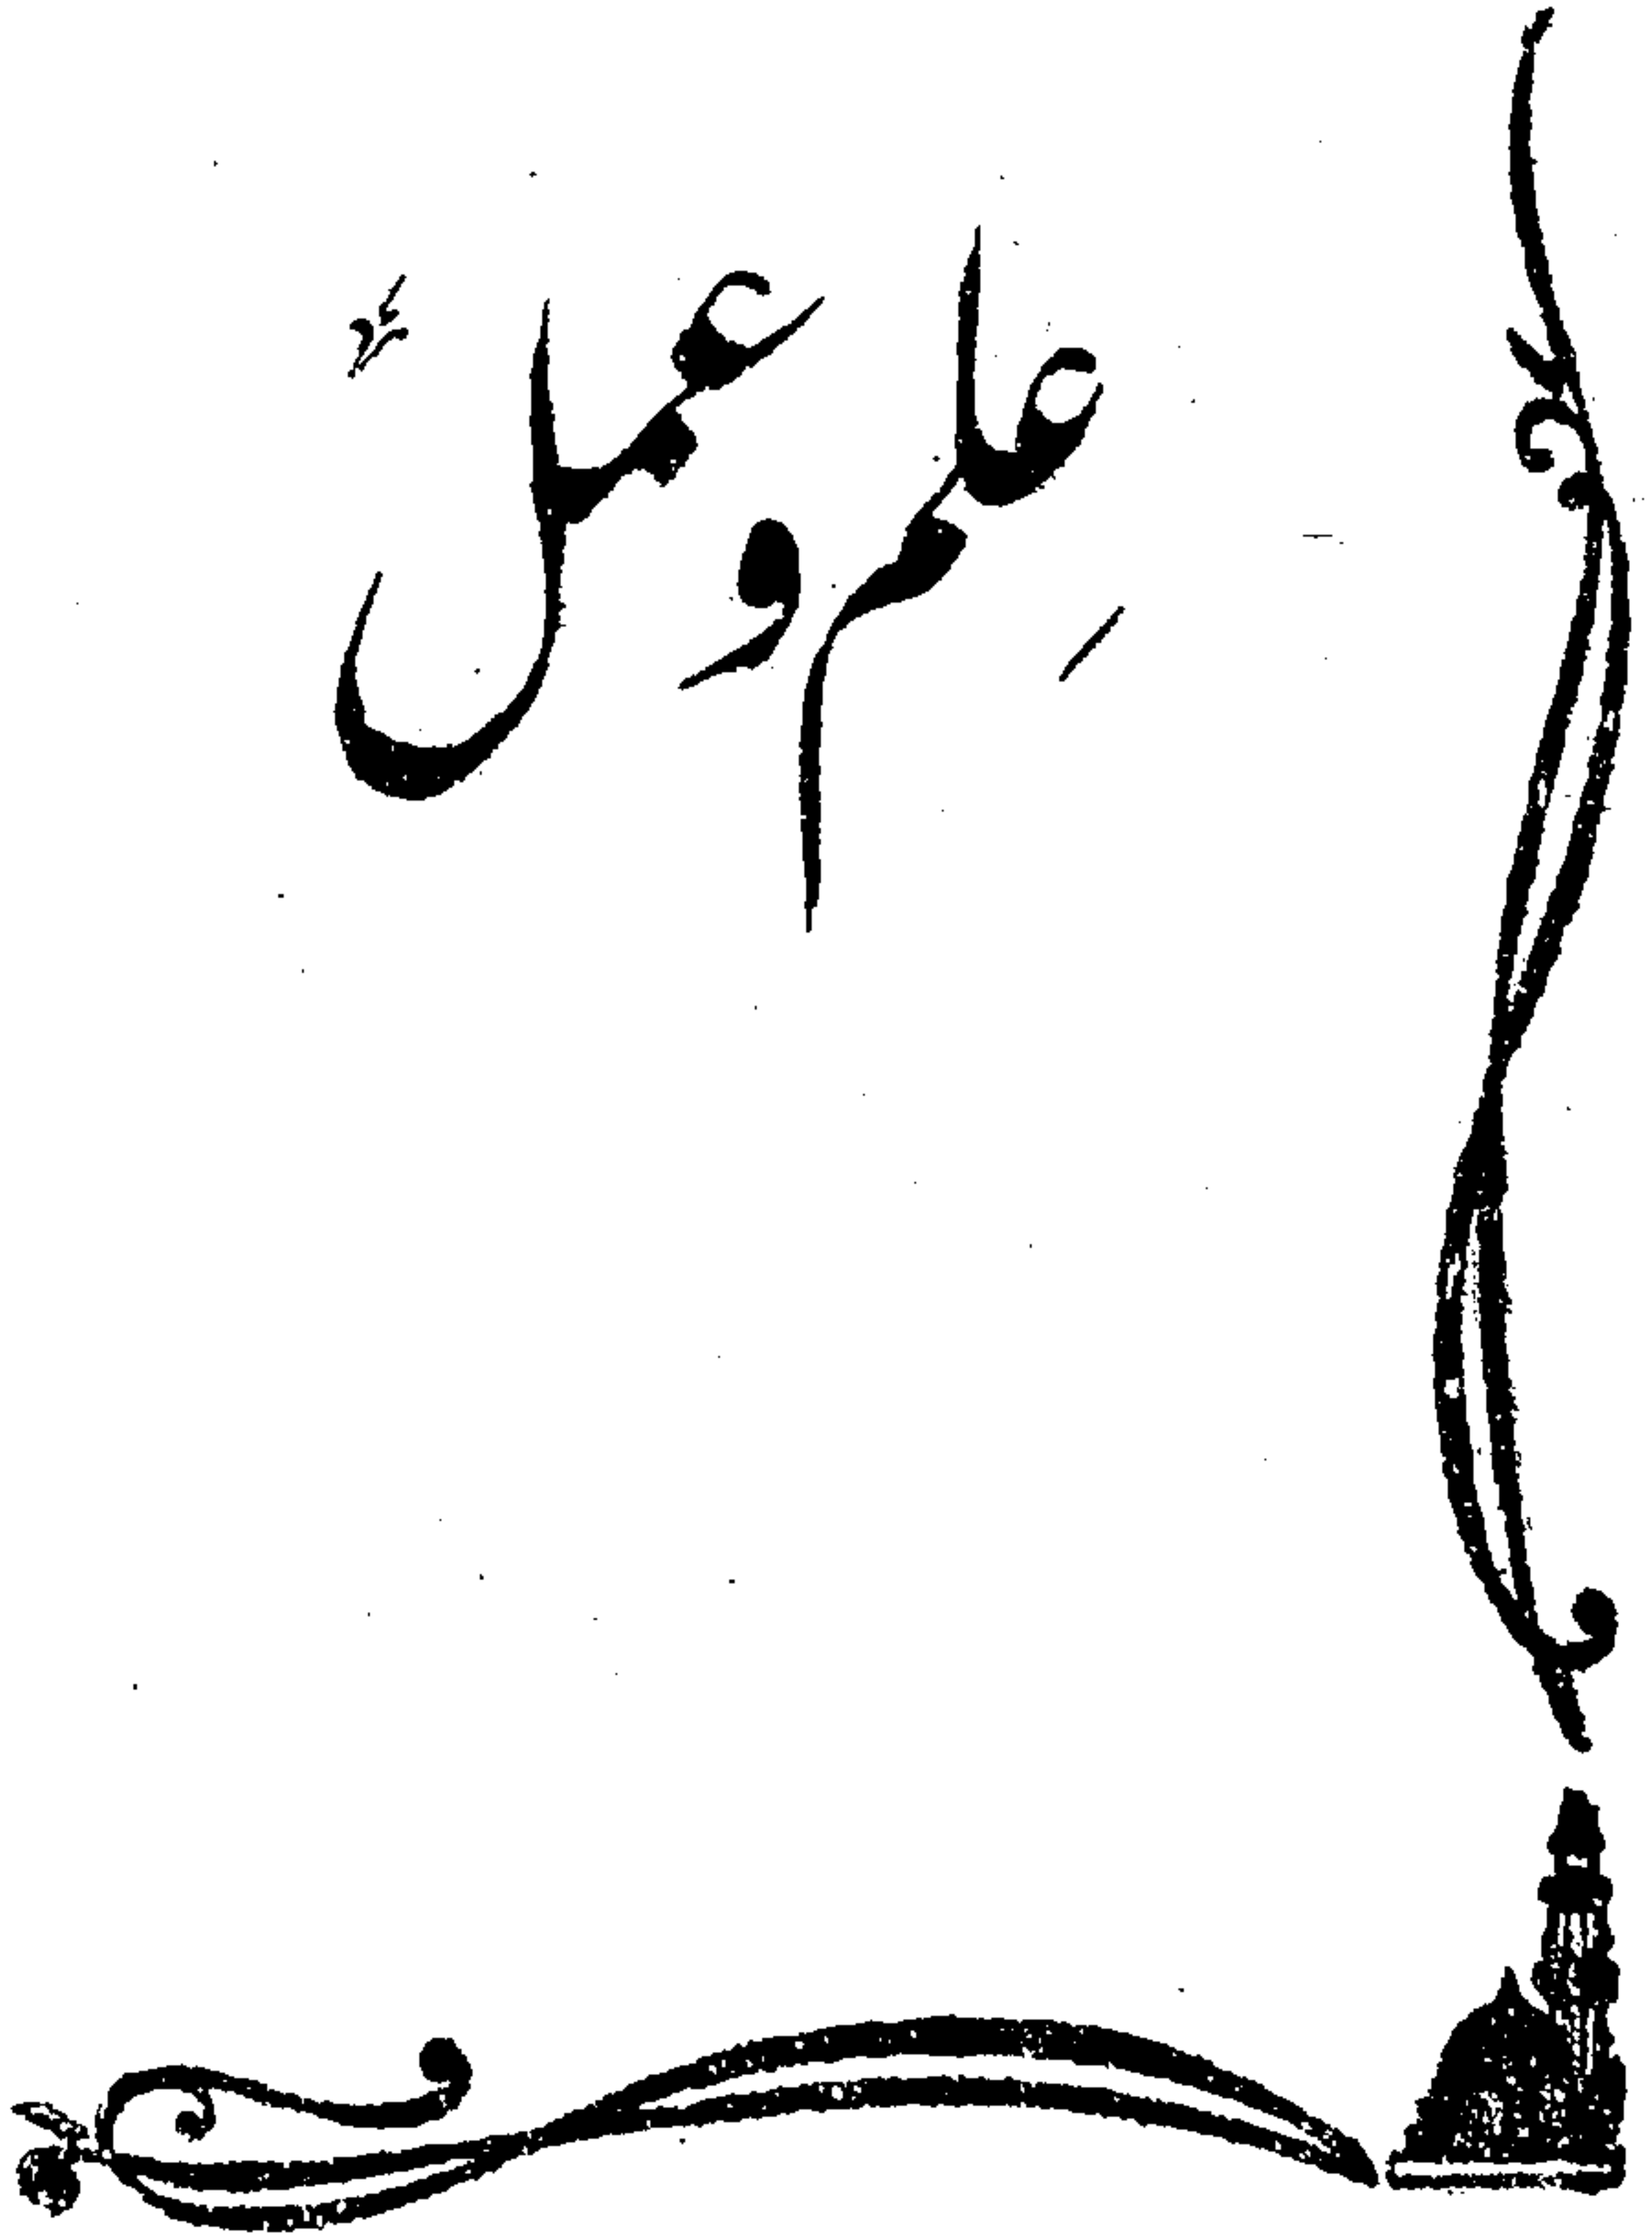 عِلم و عمل